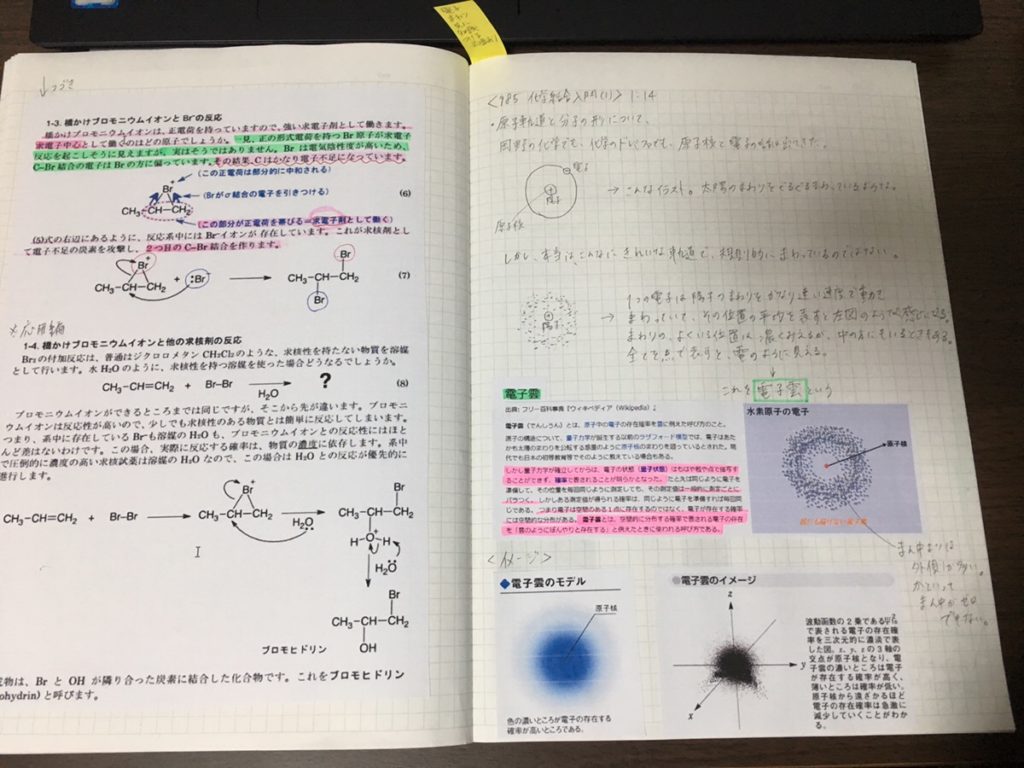 ↓つづき
1-3. 橋かけブロモニウムイオンと Br⁻の反応
橋かけブロモニウムイオンは、正電荷を持っていますので、強い求電子剤として働きます。
求電子中心として働くのはどの原子でしょうか。一見、正の形式電荷を持つ Br 原子が求電子
反応を起こしそうに見えますが、実はそうではありません。Br は電気陰性度が高いため、
C–Br 結合の電子は Br の方に偏っています。その結果、C はかなり電子不足になっています。
(この正電荷は部分的に中和される)
Br⁺
(Brがσ結合の電子を引きつける)
(6)
CH₃–CH–CH₂
(この部分が正電荷を帯びる=求電子剤として働く)
(5)式の右辺にあるように、反応系中には Br⁻イオンが存在しています。これが求核剤とし
て電子不足の炭素を攻撃し、2つ目の C–Br 結合を作ります。
Br⁺
Br
CH₃–CH–CH₂ + :Br⁻ → CH₃–CH–CH₂ (7)
Br
※応用編
1-4. 橋かけブロモニウムイオンと他の求核剤の反応
Br₂ の付加反応は、普通はジクロロメタン CH₂Cl₂ のような、求核性を持たない物質を溶媒
として行います。水 H₂O のように、求核性を持つ溶媒を使った場合どうなるでしょうか。
CH₃–CH=CH₂ + Br–Br → ? (8)
H₂O
ブロモニウムイオンができるところまでは同じですが、そこから先が違います。ブロモニ
ウムイオンは反応性が高いので、少しでも求核性のある物質とは簡単に反応してしまいます。
つまり、系中に存在している Br⁻も溶媒の H₂O も、ブロモニウムイオンとの反応性にはほと
んど差はないわけです。この場合、実際に反応する確率は、物質の濃度に依存します。系中
で圧倒的に濃度の高い求核試薬は溶媒の H₂O なので、この場合は H₂O との反応が優先的に
進行します。
Br⁺
Br
CH₃–CH=CH₂ + Br–Br → CH₃–CH–CH₂ → CH₃–CH–CH₂
H₂O
H–O⁺–H
H₂O
Br
CH₃–CH–CH₂
OH
ブロモヒドリン
物は、Br と OH が隣り合った炭素に結合した化合物です。これをブロモヒドリン
ohydrin) と呼びます。
電子
<985 化学結合入門(1)> 1:14
・原子軌道と分子の形について、
陽子
→ こんなイラスト。太陽のまわりをぐるぐるまわっているような。
原子核
しかし、本当は、こんなにきれいな軌道で、規則的にまわっているのではない。
陽子
1つの電子は陽子のまわりをかなり速い速度で動て
→ まわっていて、その位置の平均を表すと左図のような感じになる。
まわりの、よくいる位置は濃くみえるが、中の方にもいるときもある。
全てを点で表すと、雲のように見える。
これを 電子雲 という
電子雲
出典: フリー百科事典『ウィキペディア(Wikipedia)』
電子雲(でんしうん)とは、原子中の電子の存在確率を雲に例えた呼び方のこと。
原子の構造について、量子力学が誕生する以前のラザフォード模型では、電子はあた
かも太陽のまわりを公転する惑星のように原子核のまわりを回っているとされた。現
代でも日本の初等教育等でそのように教えている場合もある。
しかし量子力学が確立してからは、電子の状態(量子状態)はもはや粒や点で描写す
ることができず、確率で表されることが明らかとなった。たとえば同じように電子を
準備して、その位置を毎回同じように測定しても、その測定値は一般的に測定ごとに
バラつく。しかしある測定値が得られる確率は、同じように電子を準備すれば毎回同
じである。つまり電子は空間のある1点に存在するのではなく、電子が存在する確率
には空間的な分布がある。電子雲とは、空間的に分布する確率で表される電子の存在
を「雲のようにぼんやりと存在する」と例えたときに使われる呼び方である。
水素原子の電子
原子核
まん中よりは
外側が多い。
かといって
まん中がゼロ
でもない。
<イメージ>
◆電子雲のモデル
原子核
色の濃いところが電子の存在する
確率が高いところである。
電子雲のイメージ
z
y
x
波動函数の2乗である
で表される電子の存在確
率を三次元的に濃淡で表
した図。x, y, z の3軸の
交点が原子核となり、電
子雲の濃いところは電子
が存在する確率が高く、
薄いところは確率が低い。
原子核から遠ざかるほど
電子の存在確率は急激に
減少していくことがわか
る。